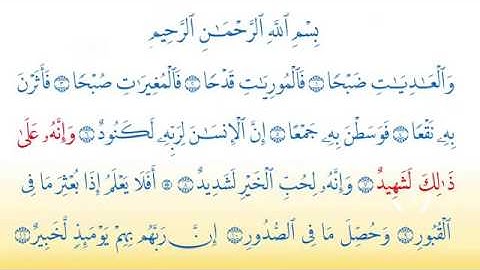 بِسْمِ اللَّهِ الرَّحْمَٰنِ الرَّحِيمِ
وَالْعَادِيَاتِ ضَبْحًا ۝ فَالْمُورِيَاتِ قَدْحًا ۝ فَالْمُغِيرَاتِ صُبْحًا ۝ فَأَثَرْنَ
بِهِ نَقْعًا ۝ فَوَسَطْنَ بِهِ جَمْعًا ۝ إِنَّ الْإِنسَانَ لِرَبِّهِ لَكَنُودٌ ۝ وَإِنَّهُ عَلَىٰ
ذَٰلِكَ لَشَهِيدٌ ۝ وَإِنَّهُ لِحُبِّ الْخَيْرِ لَشَدِيدٌ ۝ ۞ أَفَلَا يَعْلَمُ إِذَا بُعْثِرَ مَا فِي
الْقُبُورِ ۝ وَحُصِّلَ مَا فِي الصُّدُورِ ۝ إِنَّ رَبَّهُم بِهِمْ يَوْمَئِذٍ لَّخَبِيرٌ ۝